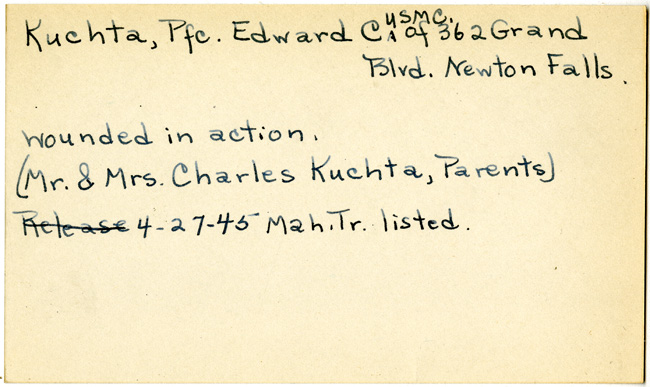 Kuchta, Pfc. Edward C. USMC. of 362 Grand
Blvd. Newton Falls.
wounded in action.
(Mr. & Mrs. Charles Kuchta, Parents)
Release 4-27-45 Mah.Tr. listed.